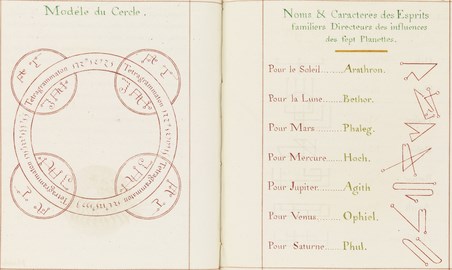 Modéle du Cercle.
Tetragrammaton
Tetragrammaton
Tetragrammaton
Tetragrammaton
Noms & Caracteres des Esprits
familiers Directeurs des influences
des sept Planettes.
Pour le Soleil......Arathron.
Pour la Lune......Bethor.
Pour Mars......Phaleg.
Pour Mercure......Hoch.
Pour Jupiter......Agith
Pour Venus......Ophiel.
Pour Saturne......Phul.